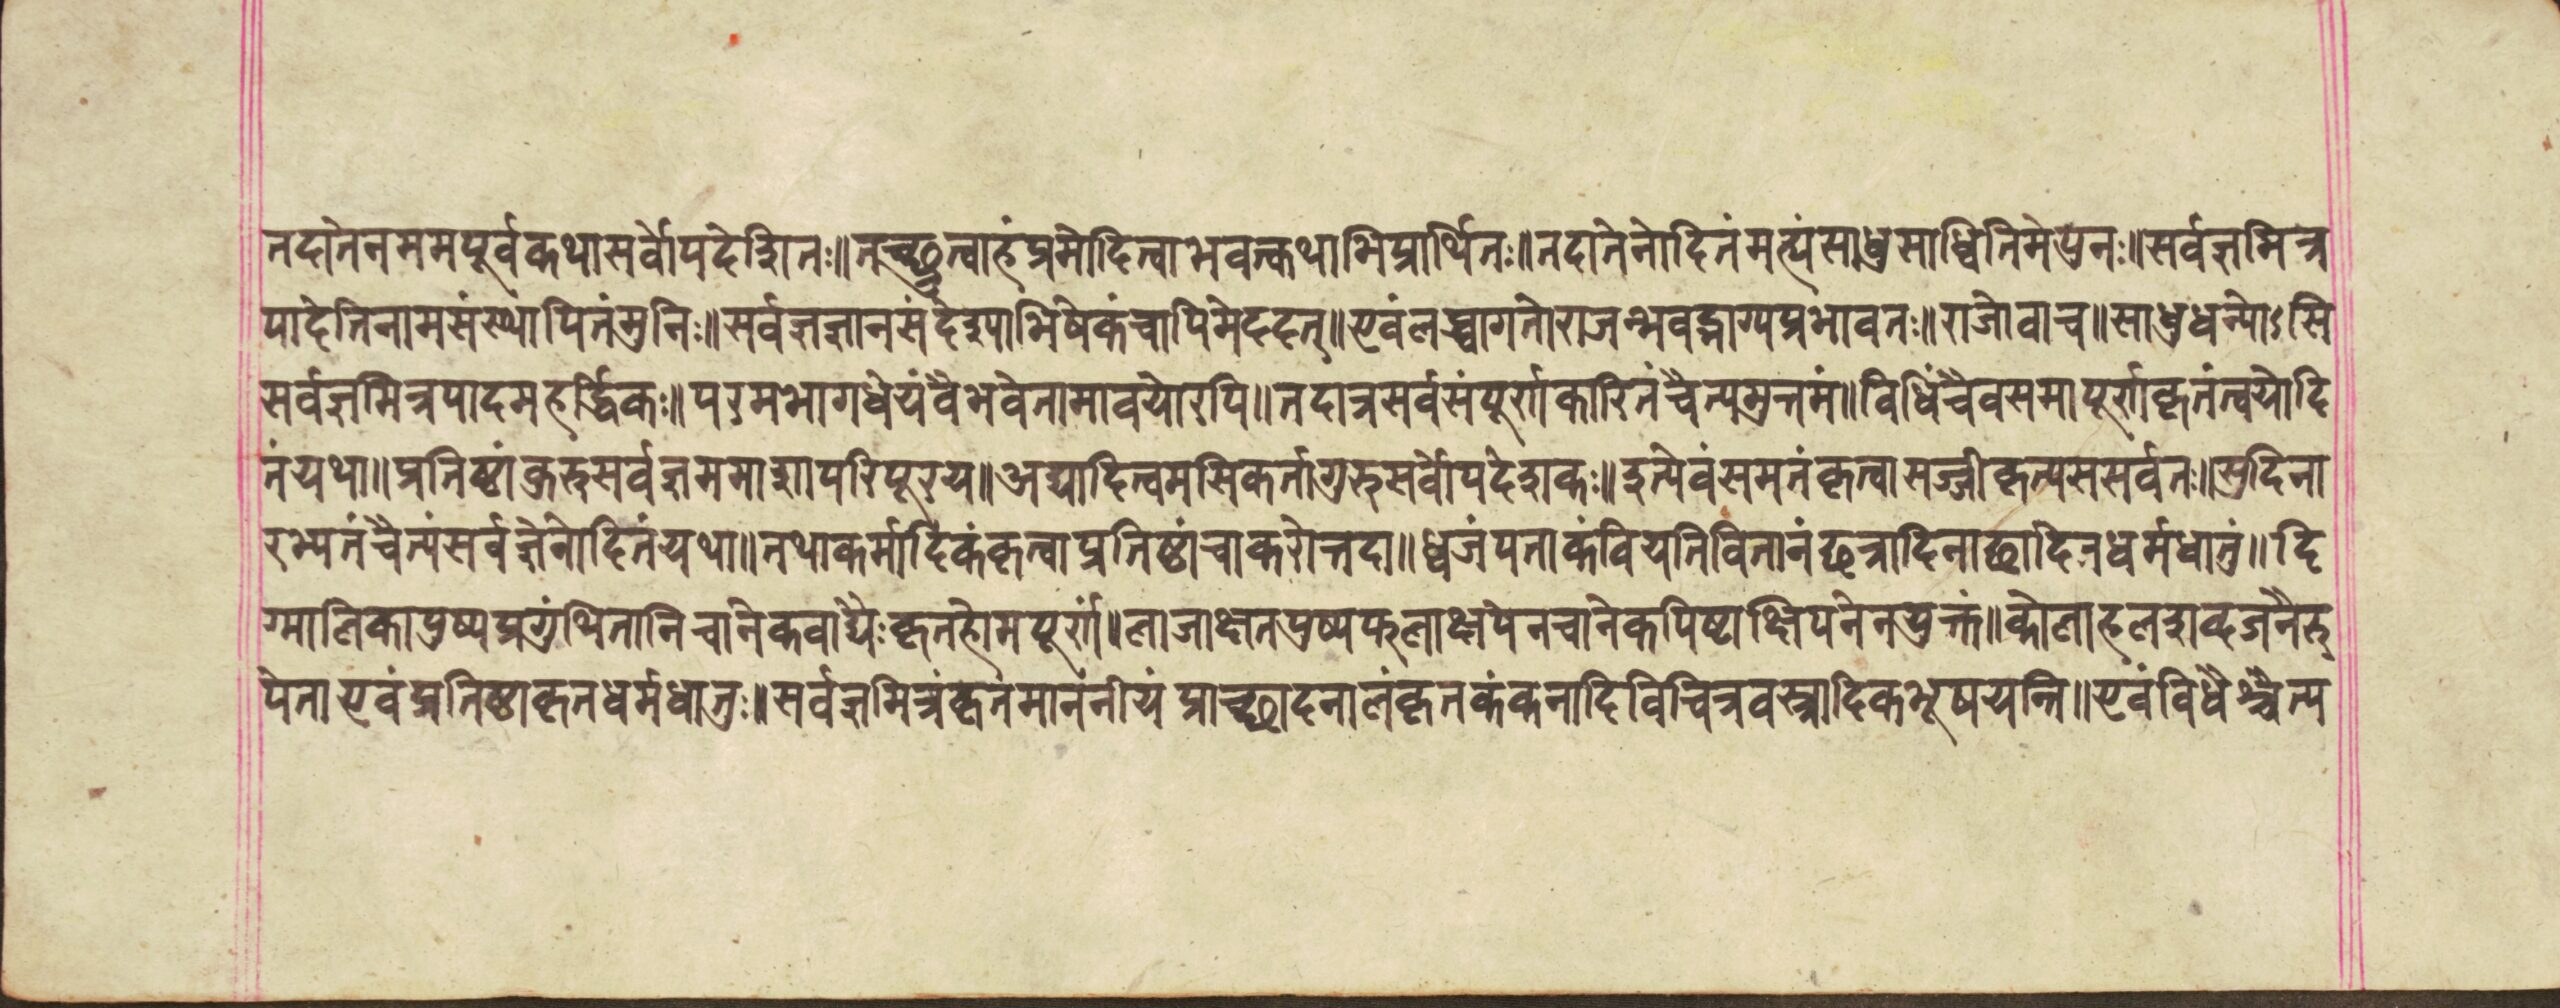 तदातेनममपूर्वकथासर्वोपदेशितः॥तच्छ्रुत्वाहंप्रमोदित्वाभवत्कथाभिप्रार्थितः॥तदातेनोदितंमत्यंसाधुसाध्वितिमेपुनः॥सर्वज्ञमित्र
पादेतिनामसंस्थापितंमुनिः॥सर्वज्ञज्ञानसंदेशाभिषेकंचापिमेददत्॥एवंलब्ध्वागतोराजन्भवद्भाग्यप्रभावतः॥राजोवाच॥साधुधन्योऽसि
सर्वज्ञमित्रपादमहर्द्धिकः॥परमभागधेयंवैभवेतामावयोरपि॥तदात्रसर्वसंपूर्णाकारितंचैत्यमुत्तमं॥विधिंचैवसमापूर्णाकृतंत्वयोदि
तंयथा॥प्रतिष्ठांकुरुसर्वज्ञममाशापरिपूरय॥अद्यादित्वमसिकर्तागुरुसर्वोपदेशकः॥इत्येवंसमतंकृत्वासज्जीकृत्यससर्वतः॥सुदिना
रभ्यतंचैत्यंसर्वज्ञेनोदितंयथा॥तथाकर्मादिकंकृत्वाप्रतिष्ठांचाकरोत्तदा॥ध्वजंपताकंवियतिवितानंछत्रादिनाछादितधर्मधातुं॥दि
ग्मालिकापुष्पप्रगुंथितानिचानेकवाद्यैःकृतहोमपूर्णां॥लाजाक्षतपुष्पफलाक्षपेनचानेकपिष्टाक्षिपनेनपुक्तं॥कोलाहलशब्दजनैरु
पेताएवंप्रतिष्ठाकृतधर्मधातुः॥सर्वज्ञमित्रंकृतमाननीयंप्राच्छादनालंकृतकंकनादिविचित्रवस्त्रादिकभूषयन्ति॥एवंविधैश्चैत्य